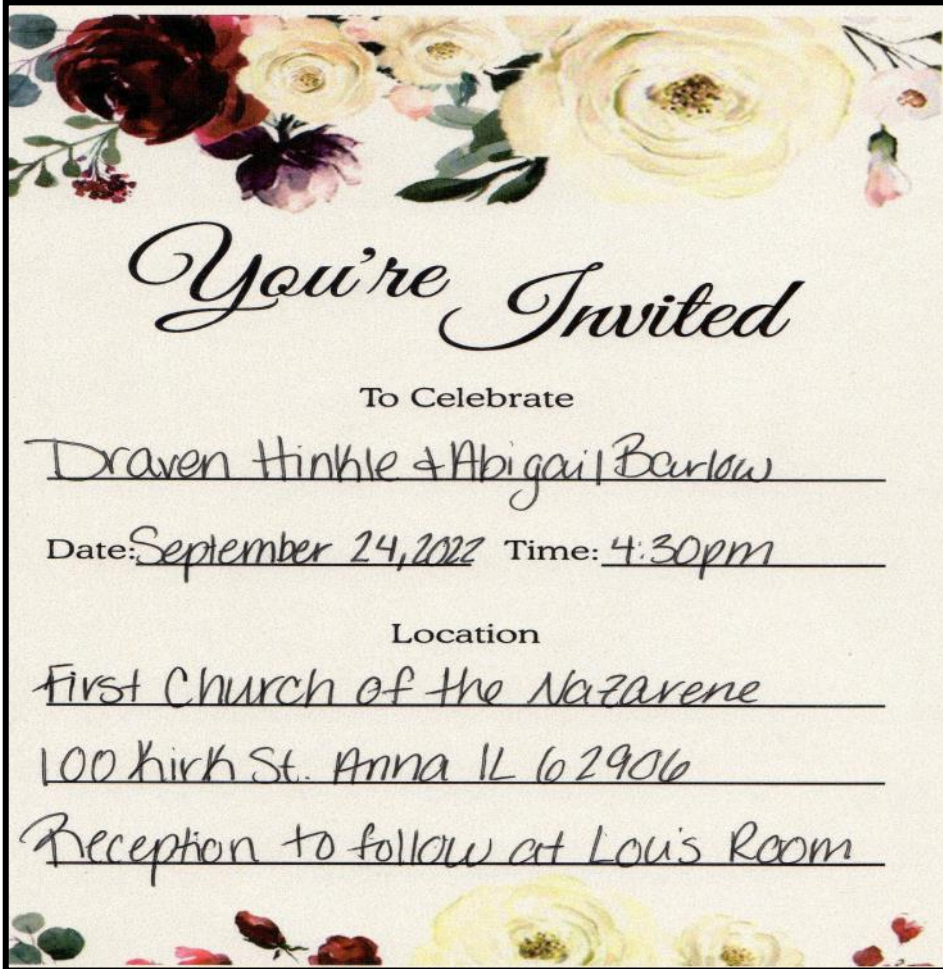 You're Invited
To Celebrate
Draven Hinkle & Abigail Barlow
Date: September 24, 2022 Time: 4:30pm
Location
First Church of the Nazarene
100 Kirk St. Anna IL 62906
Reception to follow at Lou's Room